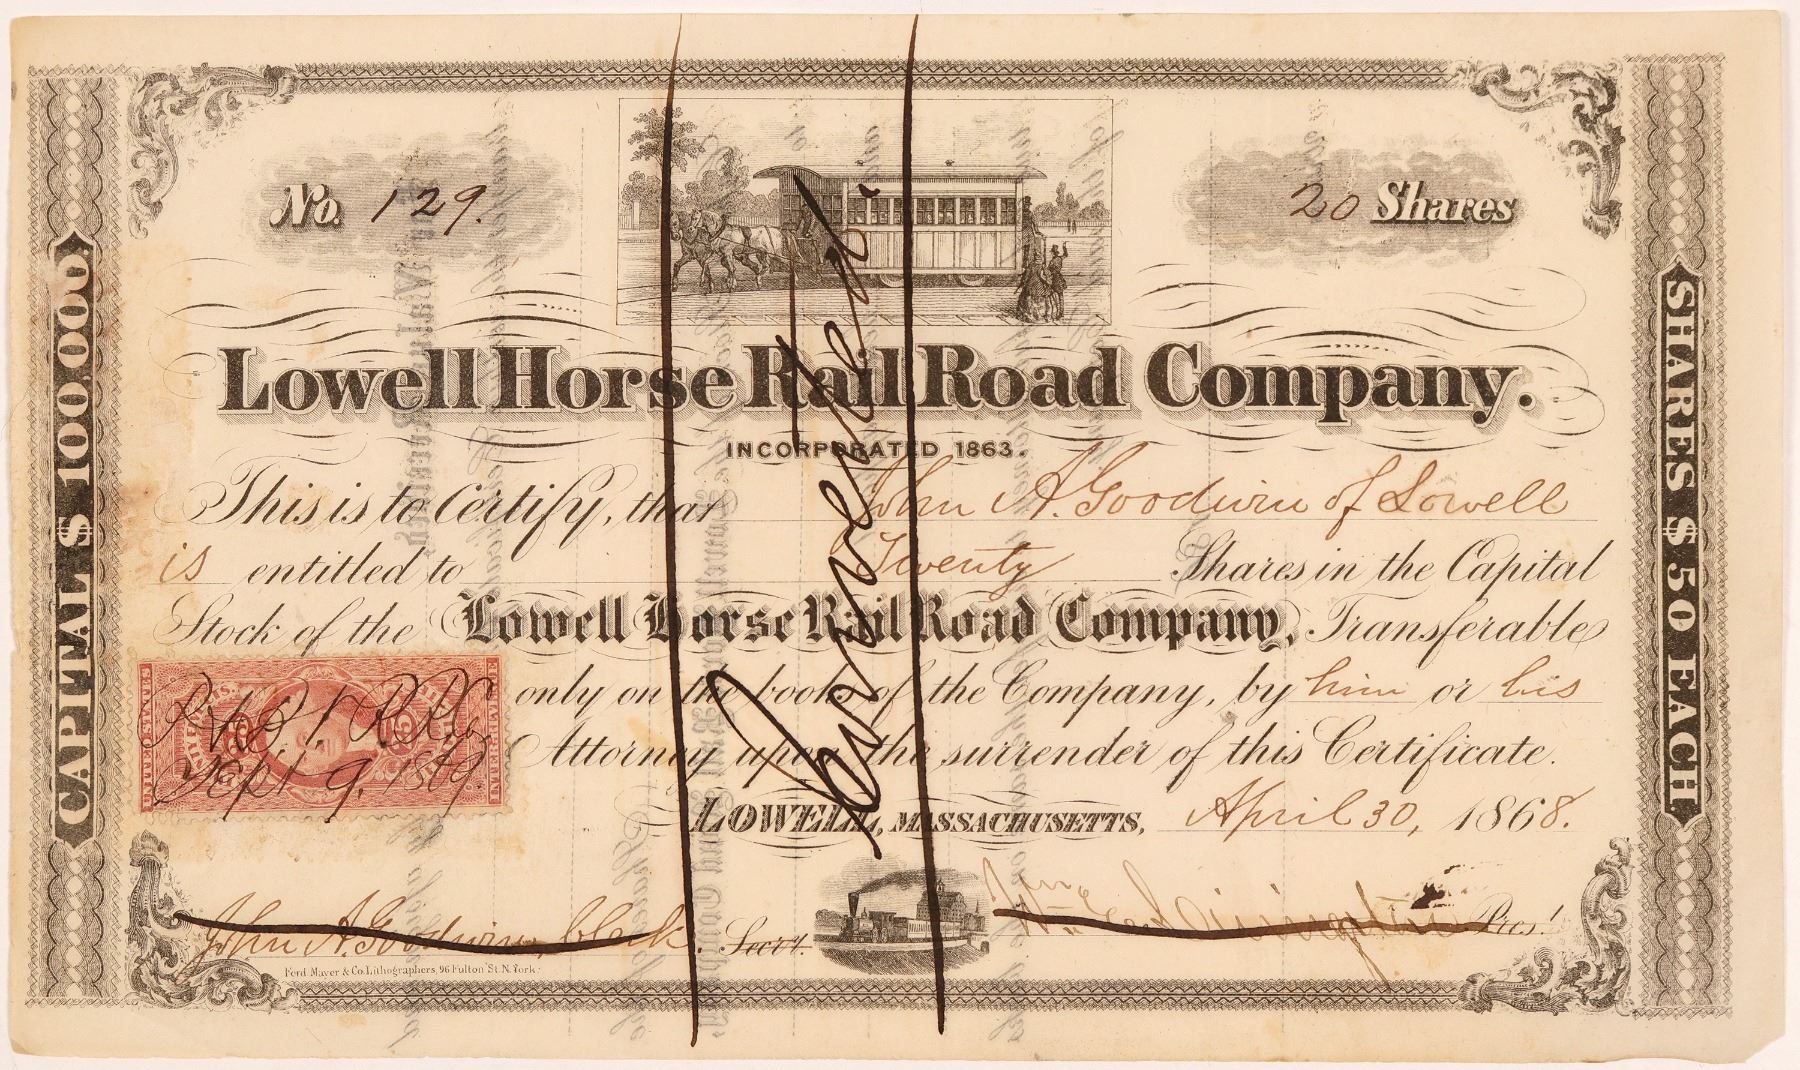 No. 129.
20 Shares
Lowell Horse Rail Road Company.
INCORPORATED 1863.
This is to Certify, that John A. Goodwin of Lowell
is entitled to Twenty Shares in the Capital
Stock of the Lowell Horse Rail Road Company, Transferable
only on the books of the Company, by him or his
Attorney upon the surrender of this Certificate.
LOWELL, MASSACHUSETTS, April 30, 1868.
John A. Goodwin, Clerk. Secr'y.
Wm. Pres't
Ferd. Mayer & Co. Lithographers, 96 Fulton St. N. York.
CAPITAL $ 100,000.
SHARES $ 50 EACH
Converted.
UNITED STATES
INTER. REV.
25
Sept. 9, 1869.